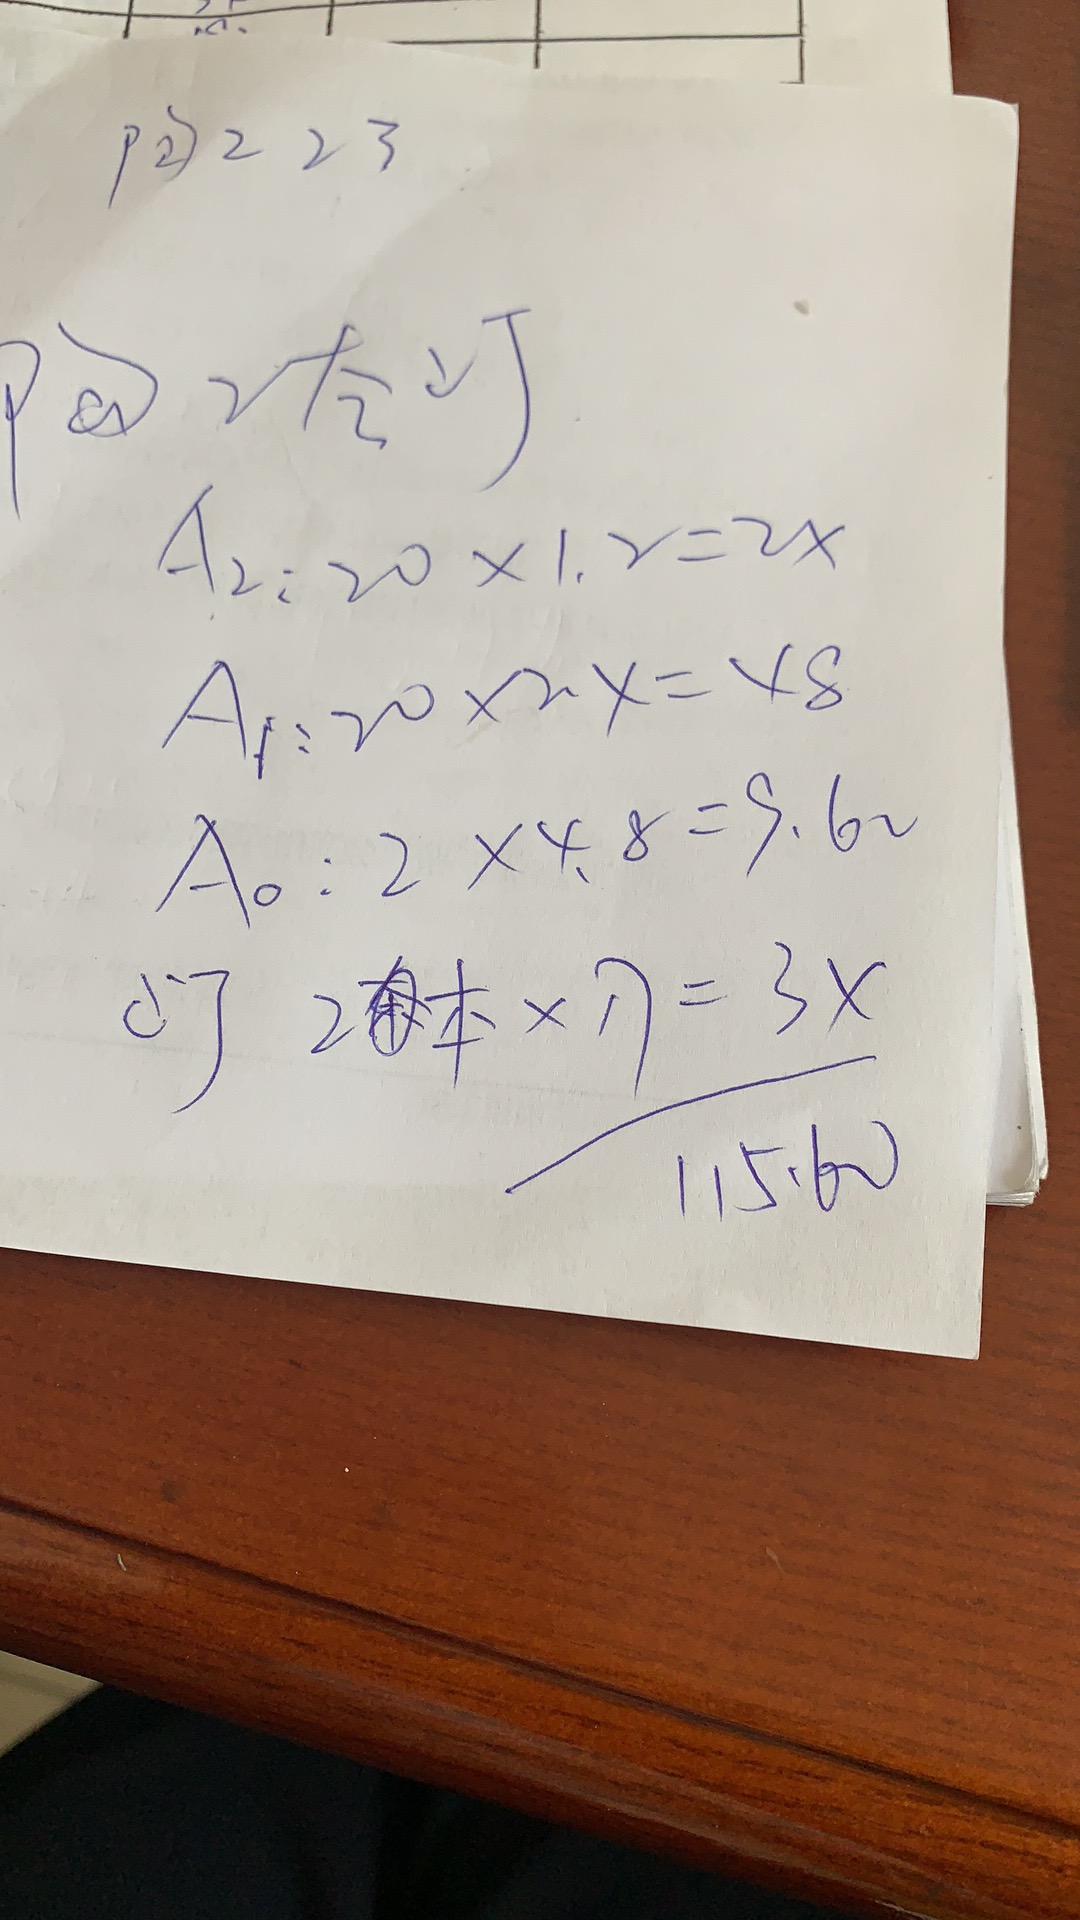 223
2套订
A2:20×1.2=24
A1:20×2.4=48
A0:2×4.8=9.60
订 2本×17=34
115.60